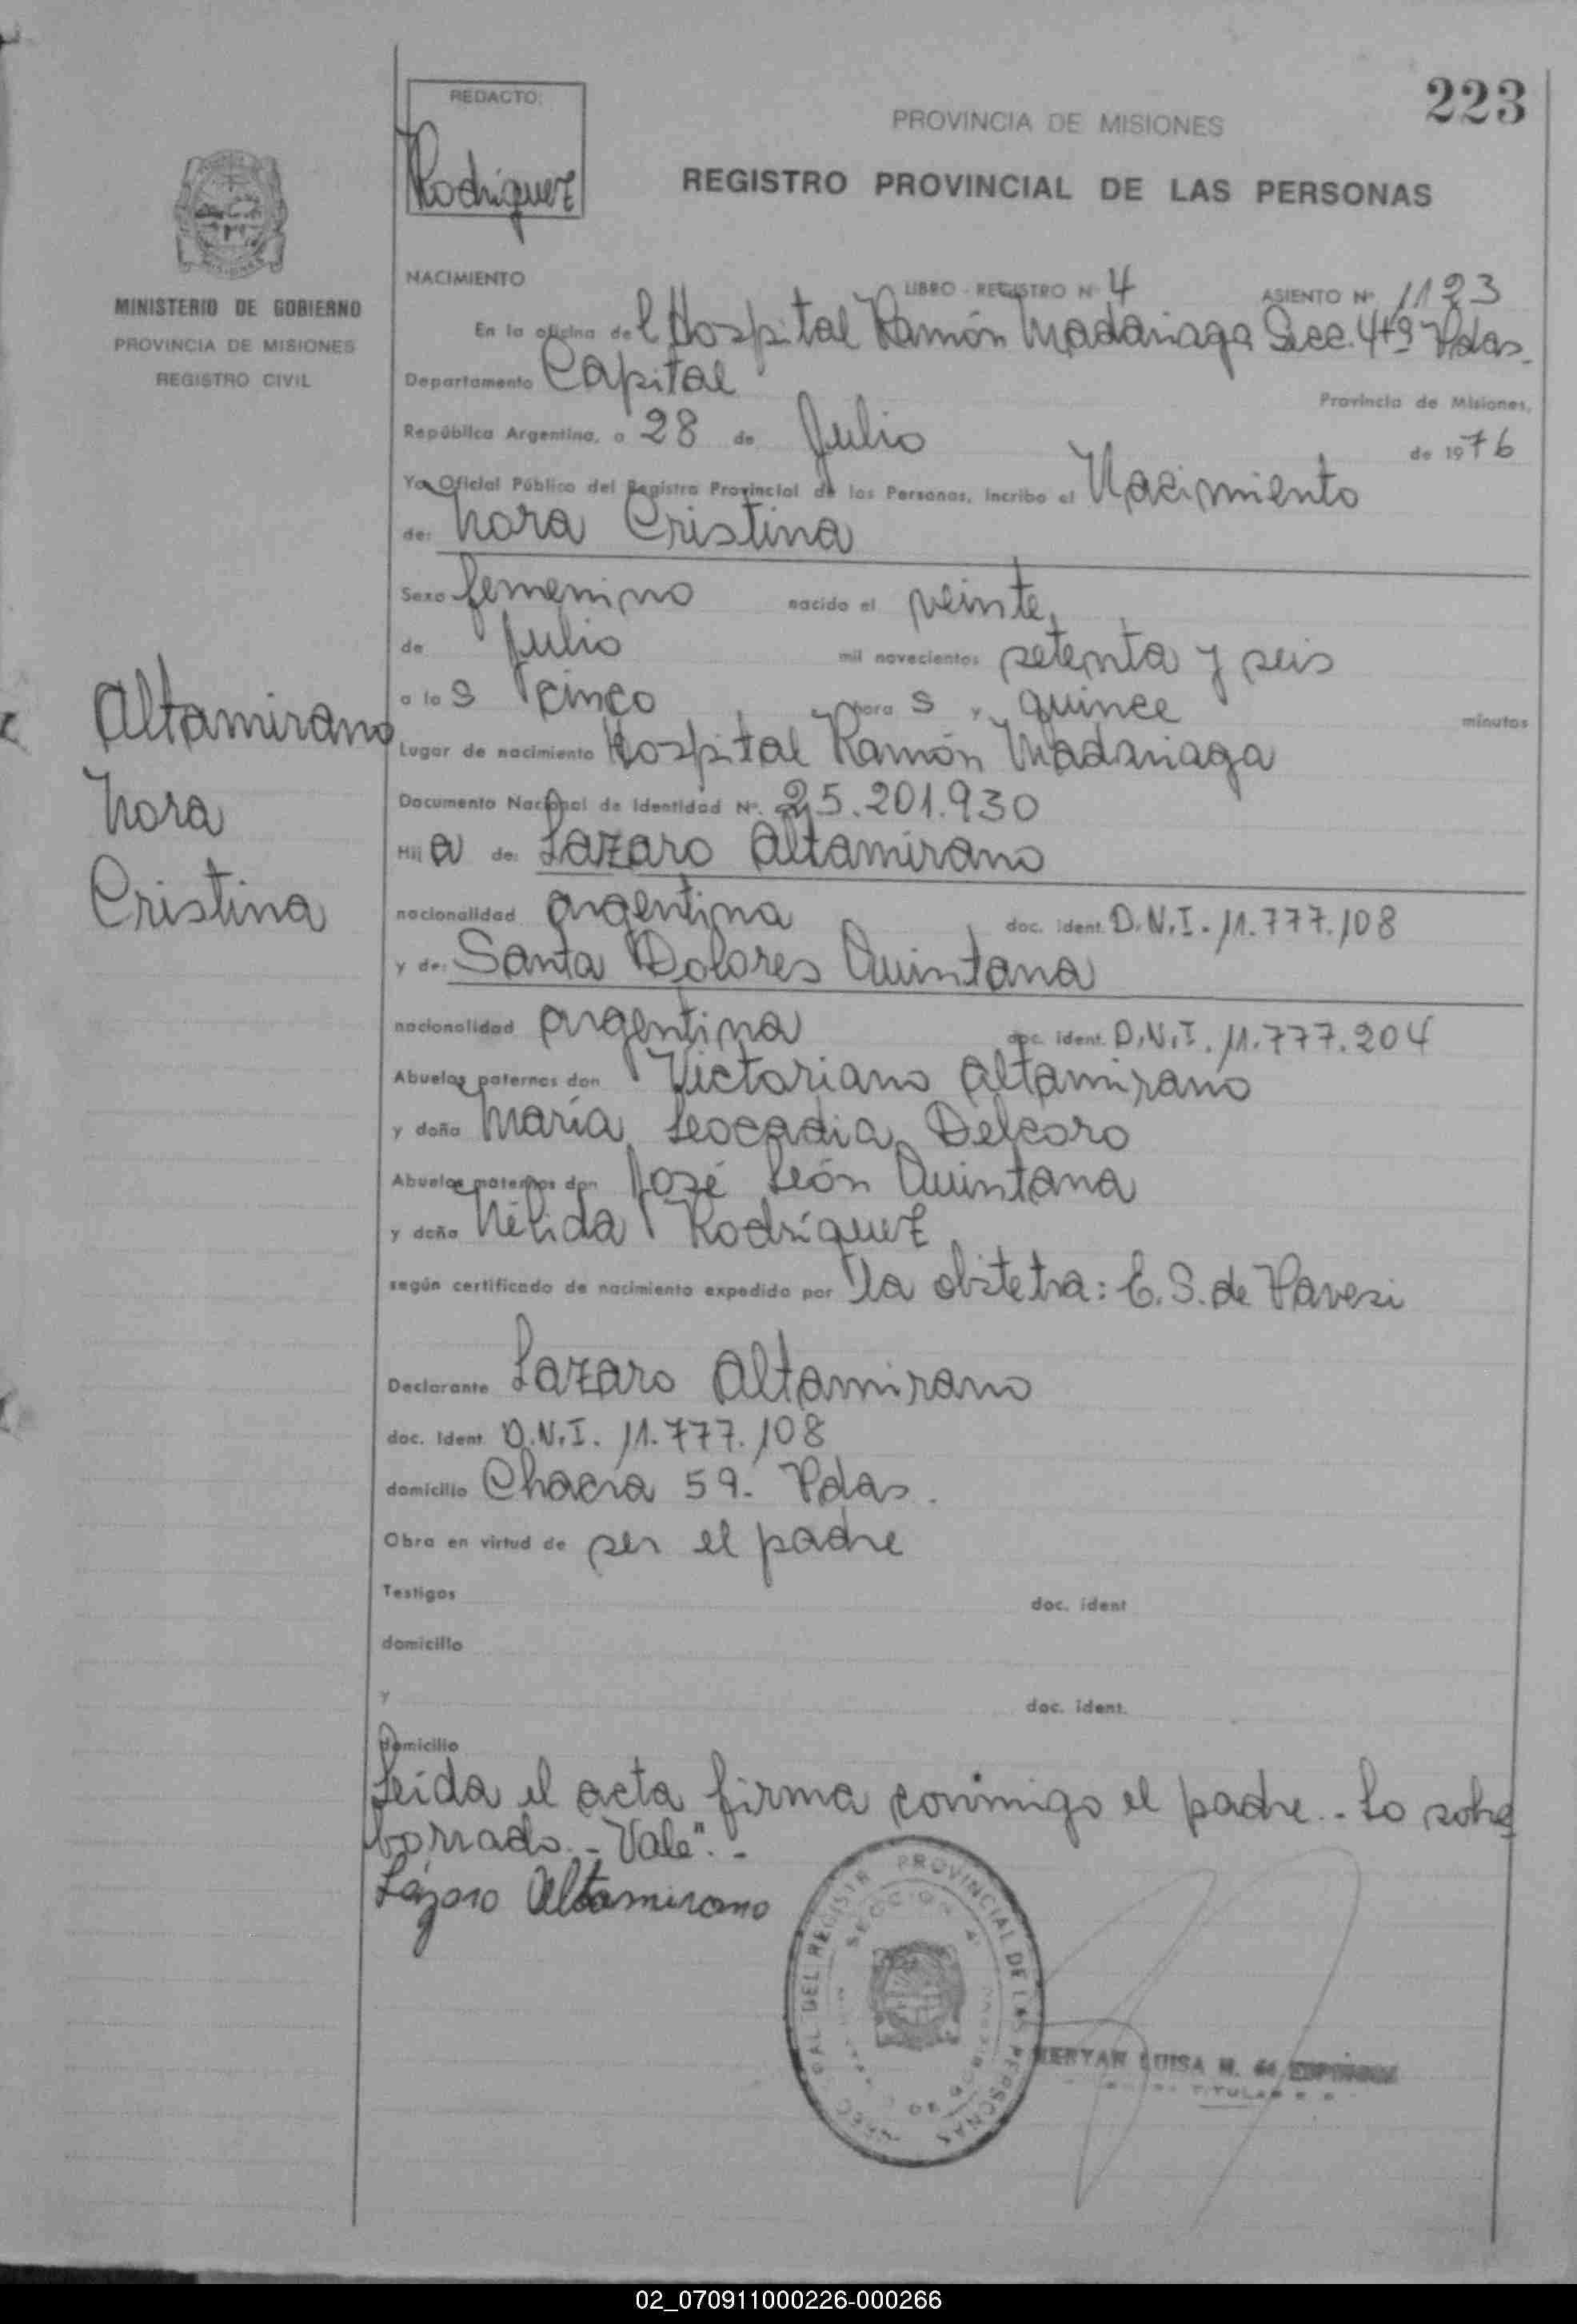 223
REDACTO:
Rodriguez
PROVINCIA DE MISIONES
REGISTRO PROVINCIAL DE LAS PERSONAS
MISIONES
MINISTERIO DE GOBIERNO
PROVINCIA DE MISIONES
REGISTRO CIVIL
NACIMIENTO LIBRO - REGISTRO Nº 4 ASIENTO Nº 1123
En la oficina del Hospital Ramón Madariaga Secc. 4ta Pdas.
Departamento Capital Provincia de Misiones,
República Argentina, a 28 de Julio de 1976
Yo Oficial Público del Registro Provincial de las Personas, inscribo el Nacimiento
de: Nora Cristina
Sexo femenino nacido el veinte
de Julio mil novecientos setenta y seis
a las cinco horas y quince minutos
Lugar de nacimiento Hospital Ramón Madariaga
Documento Nacional de Identidad Nº. 25.201.930
Hija de: Lazaro Altamirano
nacionalidad argentina doc. ident. D.N.I. 11.777.108
y de: Santa Dolores Quintana
nacionalidad argentina doc. ident. D.N.I. 11.777.204
Abuelos paternos don Victoriano Altamirano
y doña María Leocadia Delcoro
Abuelos maternos don José León Quintana
y doña Nélida Rodríguez
según certificado de nacimiento expedido por la obstetra: E. S. de Pavesi
Declarante Lazaro Altamirano
doc. ident. D.N.I. 11.777.108
domicilio Chacra 59. Pdas.
Obra en virtud de ser el padre
Testigos doc. ident
domicilio
y doc. ident.
Domicilio
Leída el acta firma conmigo el padre.- Lo sobre
borrado.- Vale".-
Lázaro Altamirano
Altamirano
Nora
Cristina
DEL REGISTR PROVINCIAL DE LAS PERSONAS
SECCION 4
LUISA M. de
TITULAR
02_070911000226-000266